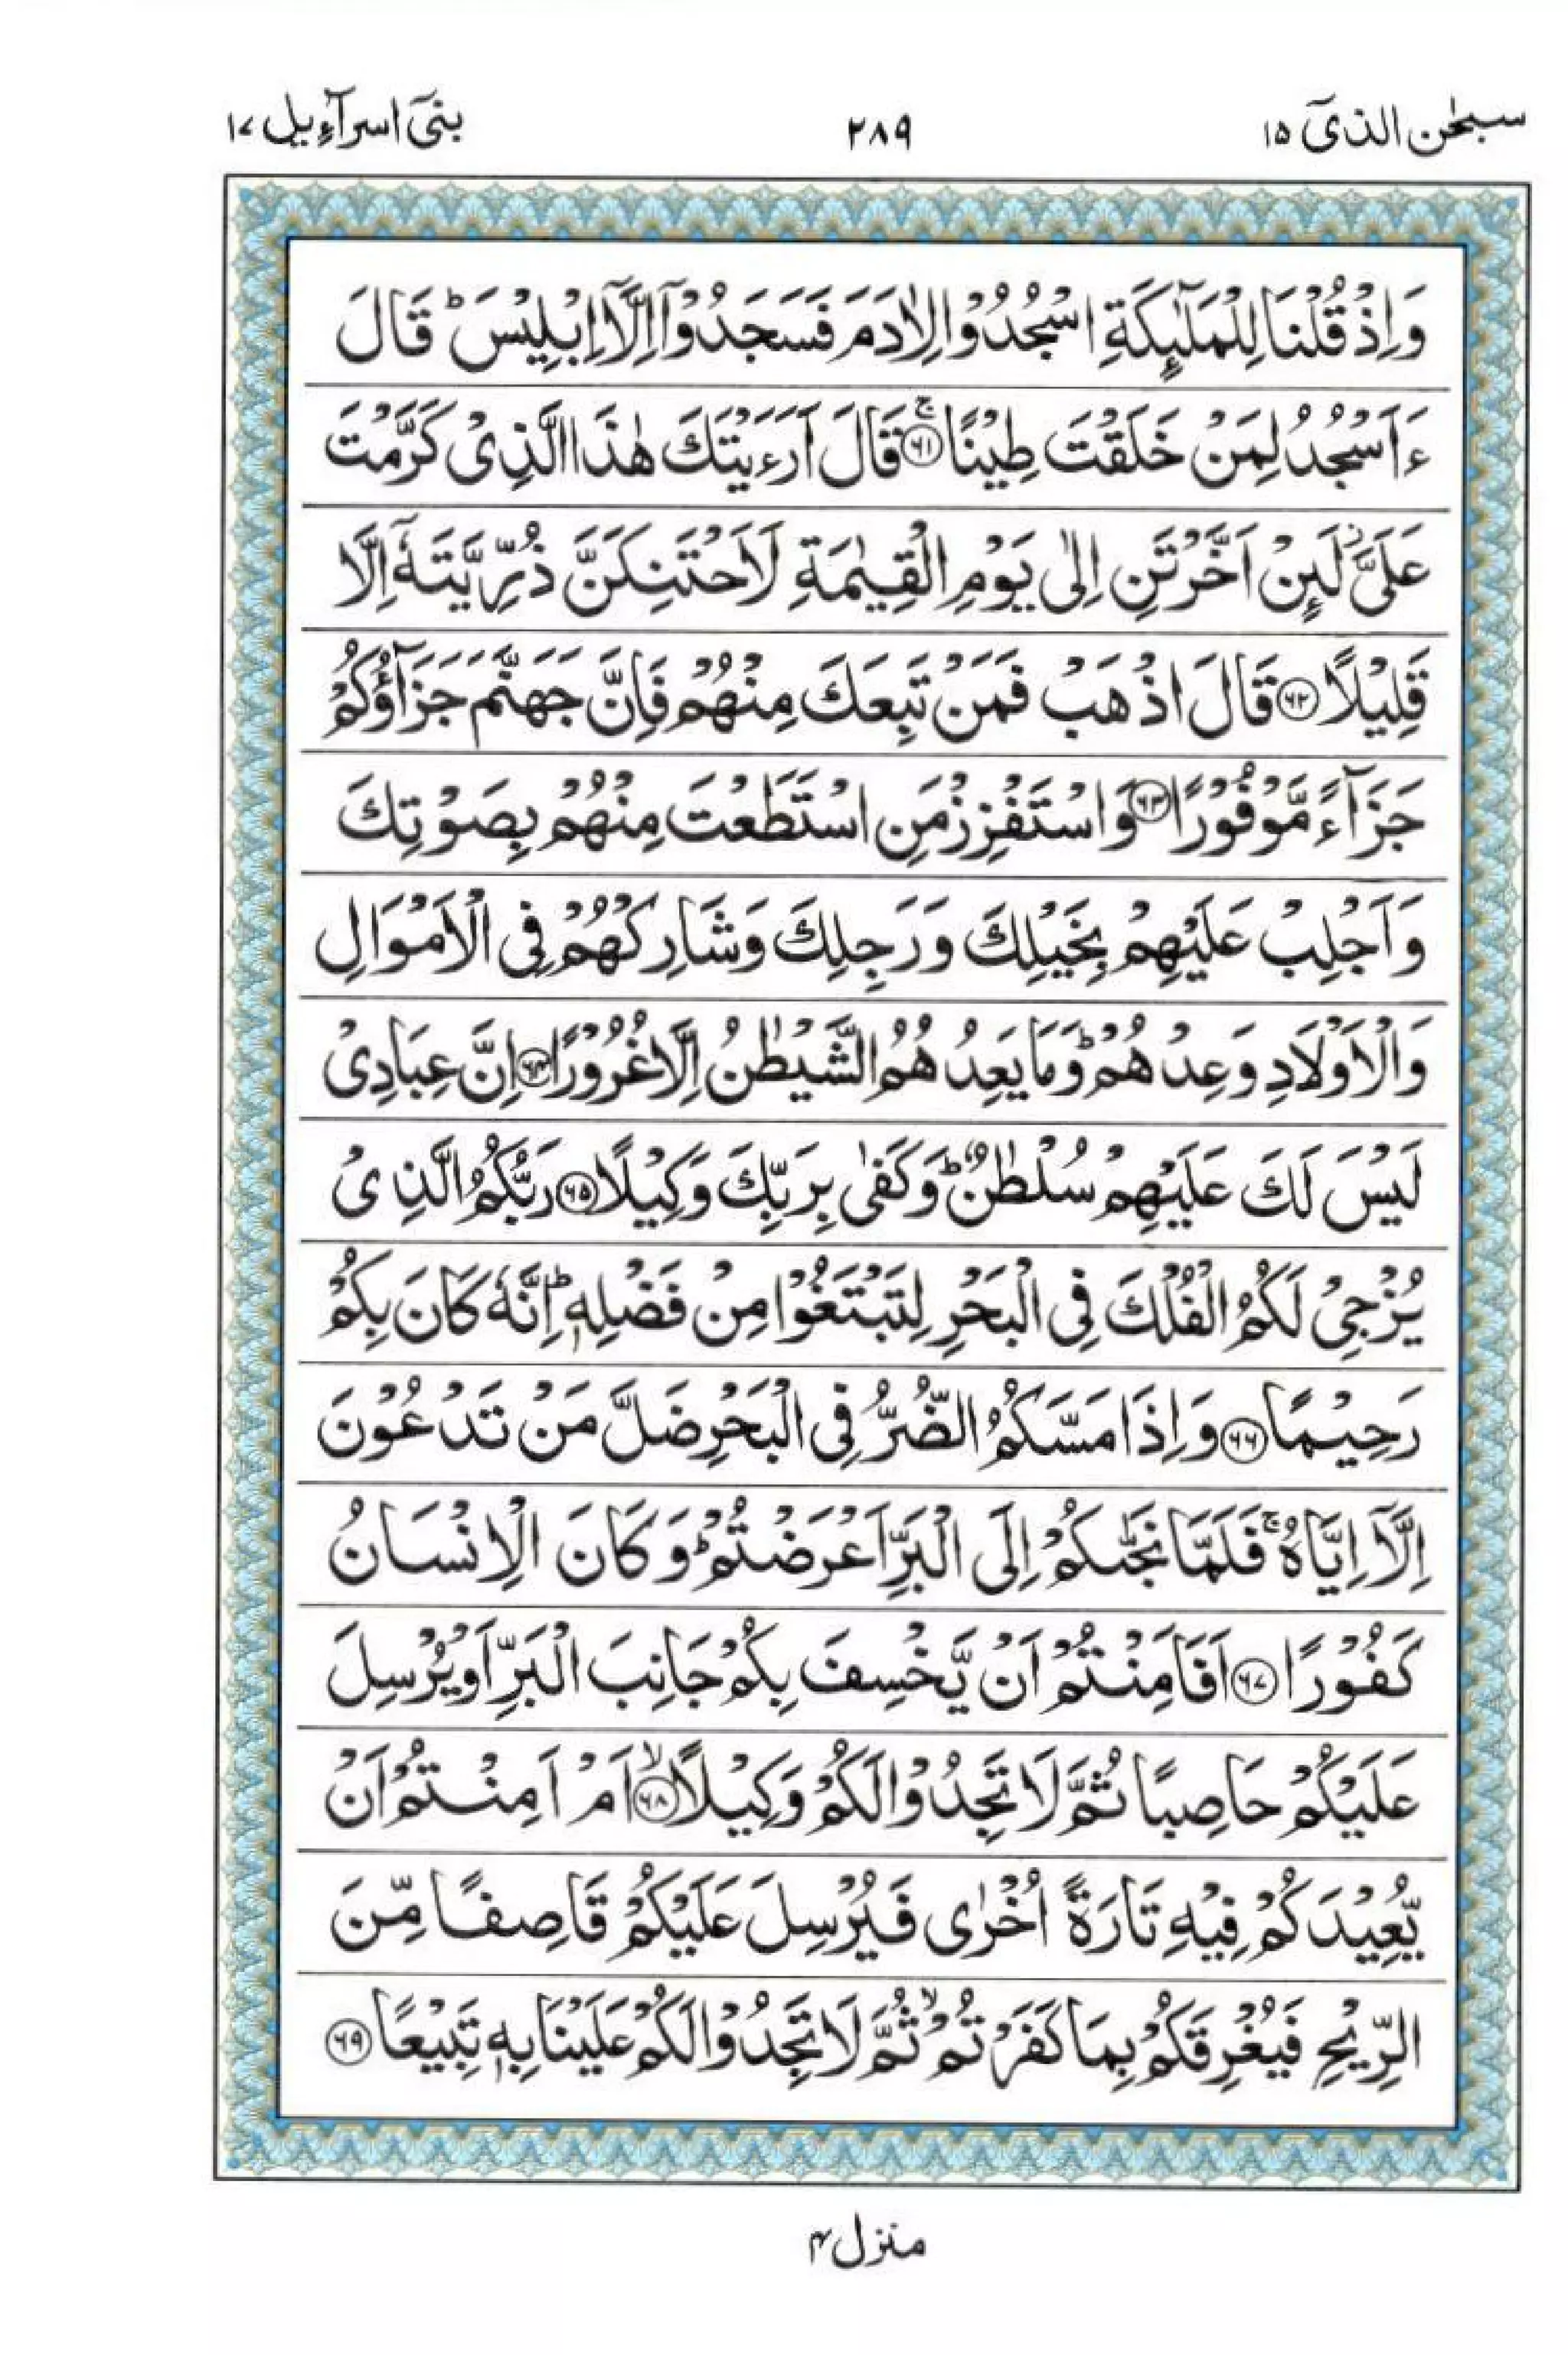 سبحٰن الذیٓ ۱۵
۲۸۹
بنیٓ اسرآءیل ۱۷
وَاِذْ قُلْنَا لِلْمَلٰٓئِكَةِ اسْجُدُوْا لِاٰدَمَ فَسَجَدُوْۤا اِلَّاۤ اِبْلِیْسَ ؕ قَالَ
ءَاَسْجُدُ لِمَنْ خَلَقْتَ طِیْنًا ۚ﴿۶۱﴾ قَالَ اَرَءَیْتَكَ هٰذَا الَّذِیْ كَرَّمْتَ
عَلَیَّ ؗ لَىِٕنْ اَخَّرْتَنِ اِلٰی یَوْمِ الْقِیٰمَةِ لَاَحْتَنِكَنَّ ذُرِّیَّتَهٗۤ اِلَّا
قَلِیْلًا ﴿۶۲﴾ قَالَ اذْهَبْ فَمَنْ تَبِعَكَ مِنْهُمْ فَاِنَّ جَهَنَّمَ جَزَآؤُكُمْ
جَزَآءً مَّوْفُوْرًا ﴿۶۳﴾ وَاسْتَفْزِزْ مَنِ اسْتَطَعْتَ مِنْهُمْ بِصَوْتِكَ
وَاَجْلِبْ عَلَیْهِمْ بِخَیْلِكَ وَرَجِلِكَ وَشَارِكْهُمْ فِی الْاَمْوَالِ
وَالْاَوْلَادِ وَعِدْهُمْ ؕ وَمَا یَعِدُهُمُ الشَّیْطٰنُ اِلَّا غُرُوْرًا ﴿۶۴﴾ اِنَّ عِبَادِیْ
لَیْسَ لَكَ عَلَیْهِمْ سُلْطٰنٌ ؕ وَكَفٰی بِرَبِّكَ وَكِیْلًا ﴿۶۵﴾ رَبُّكُمُ الَّذِیْ
یُزْجِیْ لَكُمُ الْفُلْكَ فِی الْبَحْرِ لِتَبْتَغُوْا مِنْ فَضْلِهٖ ؕ اِنَّهٗ كَانَ بِكُمْ
رَحِیْمًا ﴿۶۶﴾ وَاِذَا مَسَّكُمُ الضُّرُّ فِی الْبَحْرِ ضَلَّ مَنْ تَدْعُوْنَ
اِلَّاۤ اِیَّاهُ ۚ فَلَمَّا نَجّٰىكُمْ اِلَی الْبَرِّ اَعْرَضْتُمْ ؕ وَكَانَ الْاِنْسَانُ
كَفُوْرًا ﴿۶۷﴾ اَفَاَمِنْتُمْ اَنْ یَّخْسِفَ بِكُمْ جَانِبَ الْبَرِّ اَوْ یُرْسِلَ
عَلَیْكُمْ حَاصِبًا ثُمَّ لَا تَجِدُوْا لَكُمْ وَكِیْلًا ۙ﴿۶۸﴾ اَمْ اَمِنْتُمْ اَنْ
یُّعِیْدَكُمْ فِیْهِ تَارَةً اُخْرٰی فَیُرْسِلَ عَلَیْكُمْ قَاصِفًا مِّنَ
الرِّیْحِ فَیُغْرِقَكُمْ بِمَا كَفَرْتُمْ ۙ ثُمَّ لَا تَجِدُوْا لَكُمْ عَلَیْنَا بِهٖ تَبِیْعًا ﴿۶۹﴾
منزل ۴